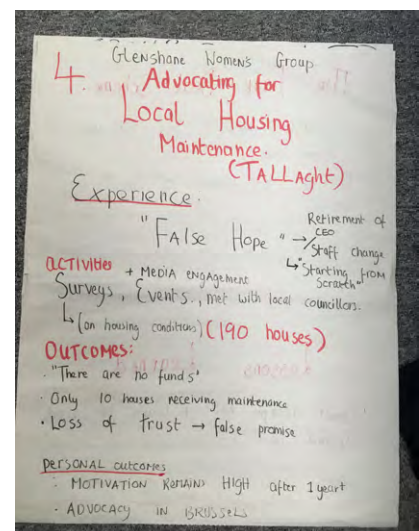 Glenshane Women's Group
4. Advocating for
Local Housing
Maintenance.
(TALLAGHT)
Experience.
"False Hope" → Retirement of
CEO
/Staff change
↳ "Starting from
Scratch"
ACTIVITIES + MEDIA ENGAGEMENT
Surveys, Events., met with local councillors.
↳ (on housing conditions) (190 houses)
OUTCOMES:
· "There are no funds"
· Only 10 houses receiving maintenance
· Loss of trust → false promise
PERSONAL OUTCOMES
· MOTIVATION REMAINS HIGH after 1 year+
· ADVOCACY IN BRUSSELS